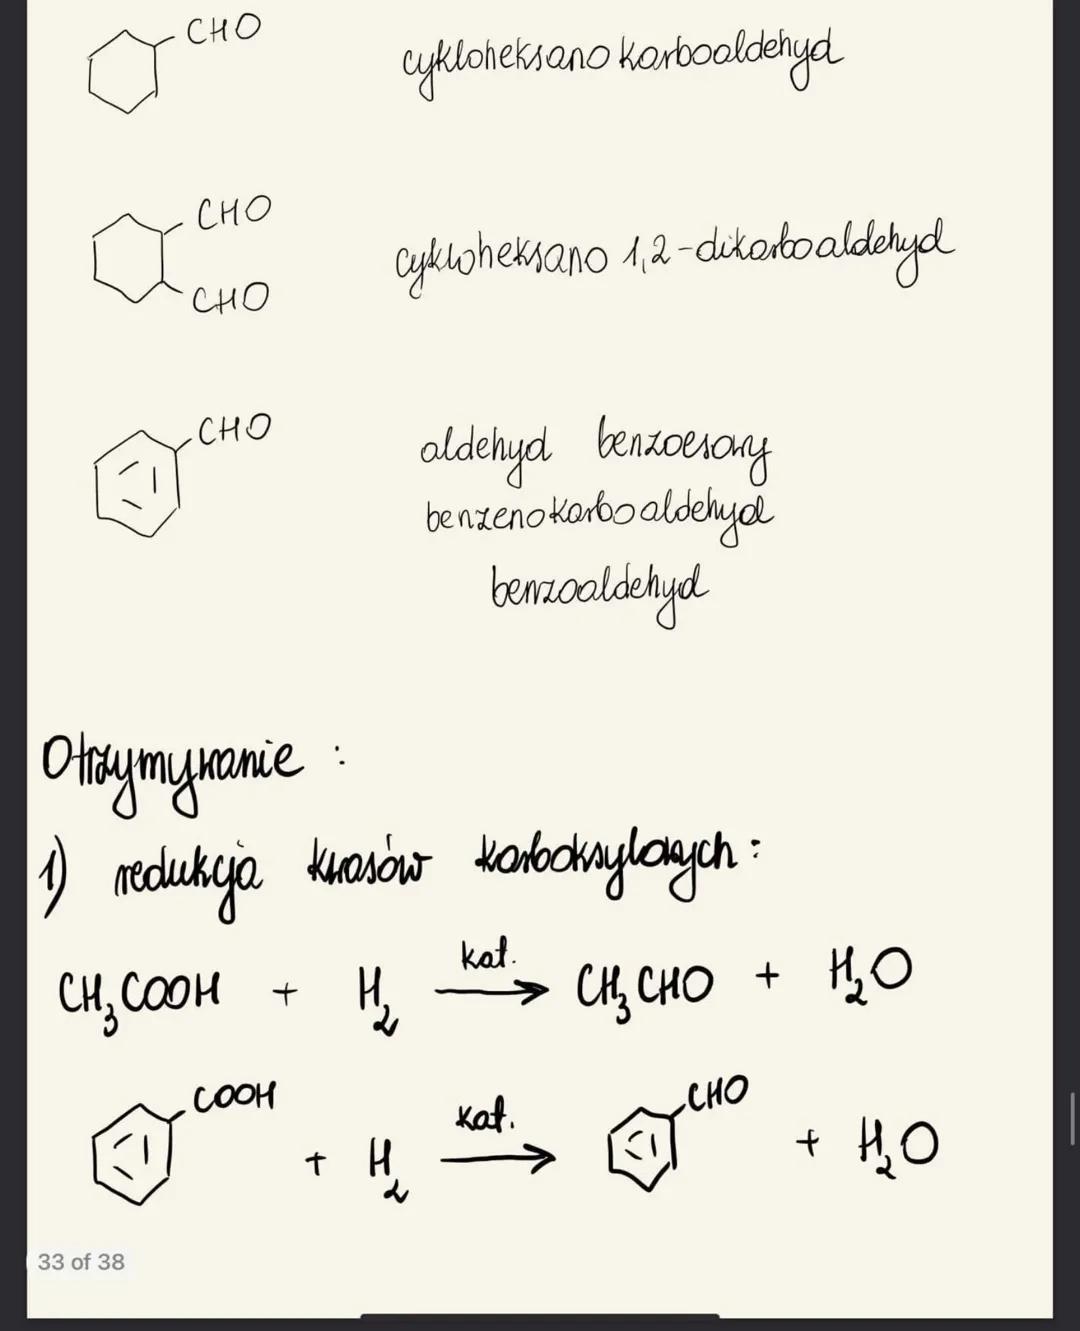 CHO
cykloheksano karboaldehyd
CHO
CHO
cykloheksano 1,2-dikarboaldehyd
CHO
aldehyd benzoesowy
benzenokarboaldehyd
benzoaldehyd
Otrzymywanie :
1) redukcja kwasów karboksylowych :
CH₃COOH + H₂ kat. → CH₃CHO + H₂O
COOH + H₂ kat. → CHO + H₂O
33 of 38